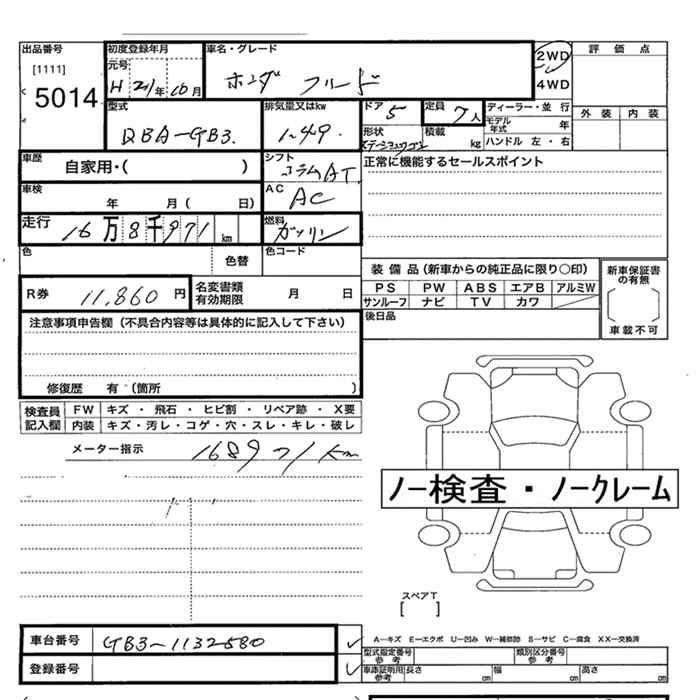 出品番号 初度登録年月 車名・グレード 評価点
[1111] 元号 2WD
5014 H 21年 10月 ホンダ フリード 4WD
型式 排気量又はkw ドア 5 定員 7人 ディーラー・並行 外装 内装
DBA-GB3. 1.49. 形状 積載 kg モデル年式 年
ハンドル 左・右
車歴 自家用・( ) シフト コラムAT 正常に機能するセールスポイント
車検 年 月( 日) AC AC
走行 16万8千971km 燃料 ガソリン
色 色替 色コード
装備品(新車からの純正品に限り○印) 新車保証書の有無
R券 11,860円 名変書類有効期限 月 日 PS PW ABS エアB アルミW
サンルーフ ナビ TV カワ 車載不可
注意事項申告欄(不具合内容等は具体的に記入して下さい) 後日品
修復歴 有(箇所 )
検査員記入欄 FW キズ・飛石・ヒビ割・リペア跡・X要
内装 キズ・汚レ・コゲ・穴・スレ・キレ・破レ
メーター指示 168971km
ノー検査・ノークレーム
スペアT
[ ]
車台番号 GB3-1132580 A-キズ E-エクボ U-凹み W-補修跡 S-サビ C-腐食 XX-交換済
型式指定番号 参考 類別区分番号 参考
登録番号 車庫証明用 参考 長さ cm 幅 cm 高さ cm